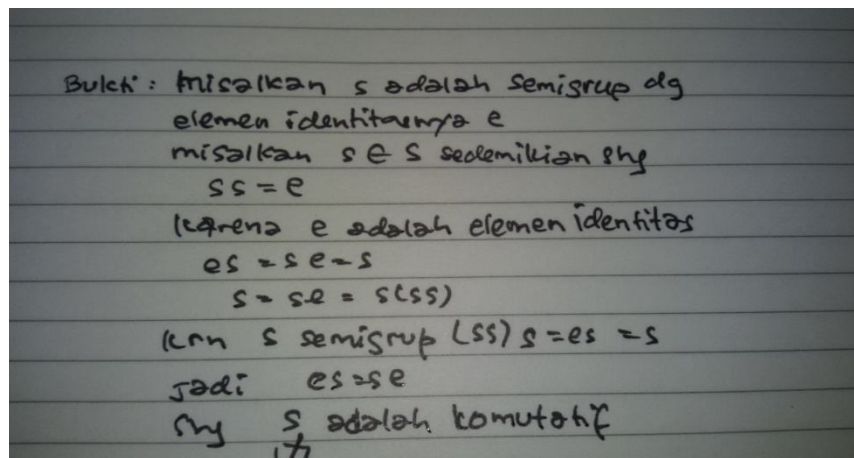 Bukti : misalkan s adalah semigrup dg
elemen identitasnya e
misalkan s ∈ S sedemikian shg
ss = e
karena e adalah elemen identitas
es = se = s
s = se = s(ss)
krn s semigrup (ss)s = es = s
Jadi es = se
shg S adalah komutatif